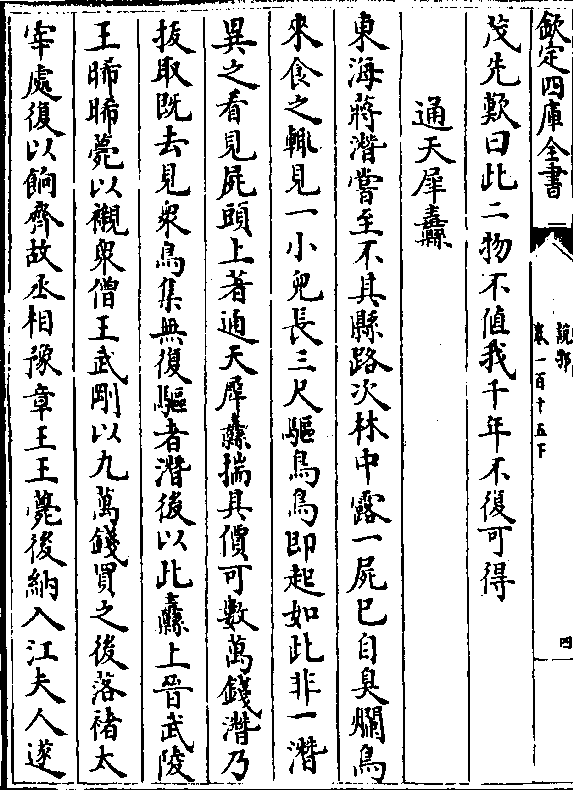 欽定四庫全書
說郛
卷一百十五下
四
茂先歎曰此二物不值我千年不復可得
通天犀纛
東海蔣潛嘗至不其縣路次林中露一屍已自臭爛鳥
來食之輒見一小兒長三尺驅鳥鳥即起如此非一潛
異之看見屍頭上著通天犀纛揣其價可數萬錢潛乃
拔取既去見衆鳥集無復驅者潛後以此纛上晉武陵
王晞晞薨以襯衆僧王武剛以九萬錢買之後落禇太
宰處復以餉齊故丞相豫章王王薨後納入江夫人遂